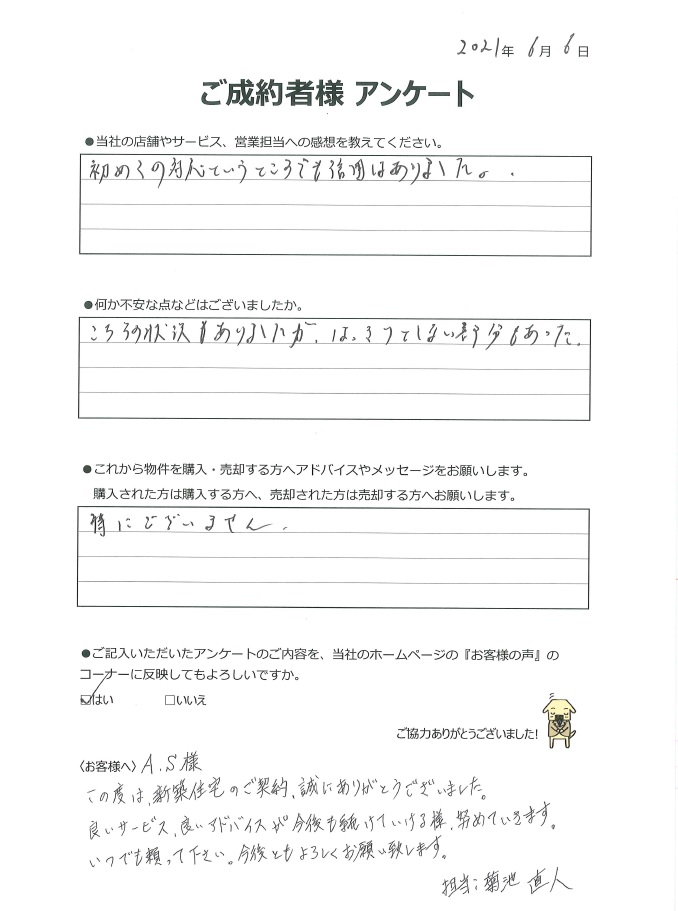 2021年 6月 6日
ご成約者様 アンケート
●当社の店舗やサービス、営業担当への感想を教えてください。
初めての対応というところでも信用はありました。
●何か不安な点などはございましたか。
こちらの状況もありましたが、はっきりとしない部分もあった。
●これから物件を購入・売却する方へアドバイスやメッセージをお願いします。
購入された方は購入する方へ、売却された方は売却する方へお願いします。
特にございません。
●ご記入いただいたアンケートのご内容を、当社のホームページの『お客様の声』の
コーナーに反映してもよろしいですか。
☑はい □いいえ
ご協力ありがとうございました!
〈お客様へ〉A.S様
この度は、新築住宅のご契約、誠にありがとうございました。
良いサービス、良いアドバイスが今後も続けていける様、努めていきます。
いつでも頼って下さい。今後ともよろしくお願い致します。
担当:菊池 直人